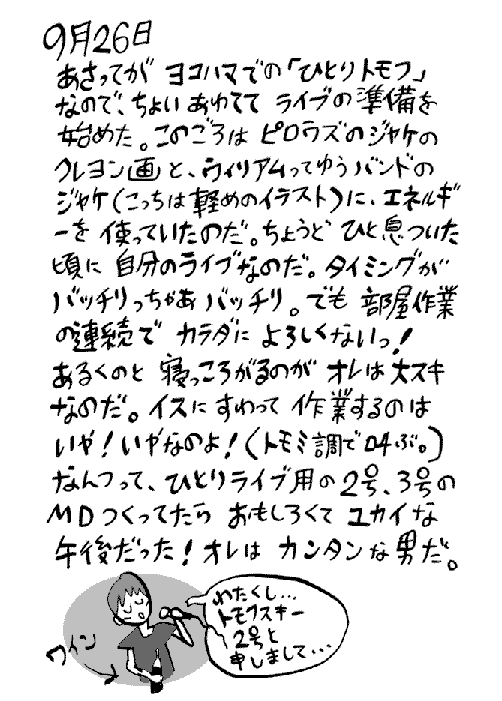 9月26日
あさってが ヨコハマでの「ひとりトモフ」
なので、ちょいあわてて ライブの準備を
始めた。このごろは ピロウズのジャケの
クレヨン画と、ウィリアムってゆうバンドの
ジャケ(こっちは軽めのイラスト)に、エネルギ
ーを 使っていたのだ。ちょうど ひと息ついた
頃に 自分のライブなのだ。タイミングが
バッチリっちゃあ バッチリ。でも 部屋作業
の連続で カラダに よろしくないっ!
あるくのと 寝っころがるのが オレは大スキ
なのだ。イスにすわって 作業するのは
いや!いやなのよ!(トモミ調で叫ぶ。)
なんつって、ひとりライブ用の2号、3号の
MDつくってたら おもしろくて ユカイな
午後だった!オレは カンタンな男だ。
わたくし…
トモフスキー
2号と
申しまして…
ワイン